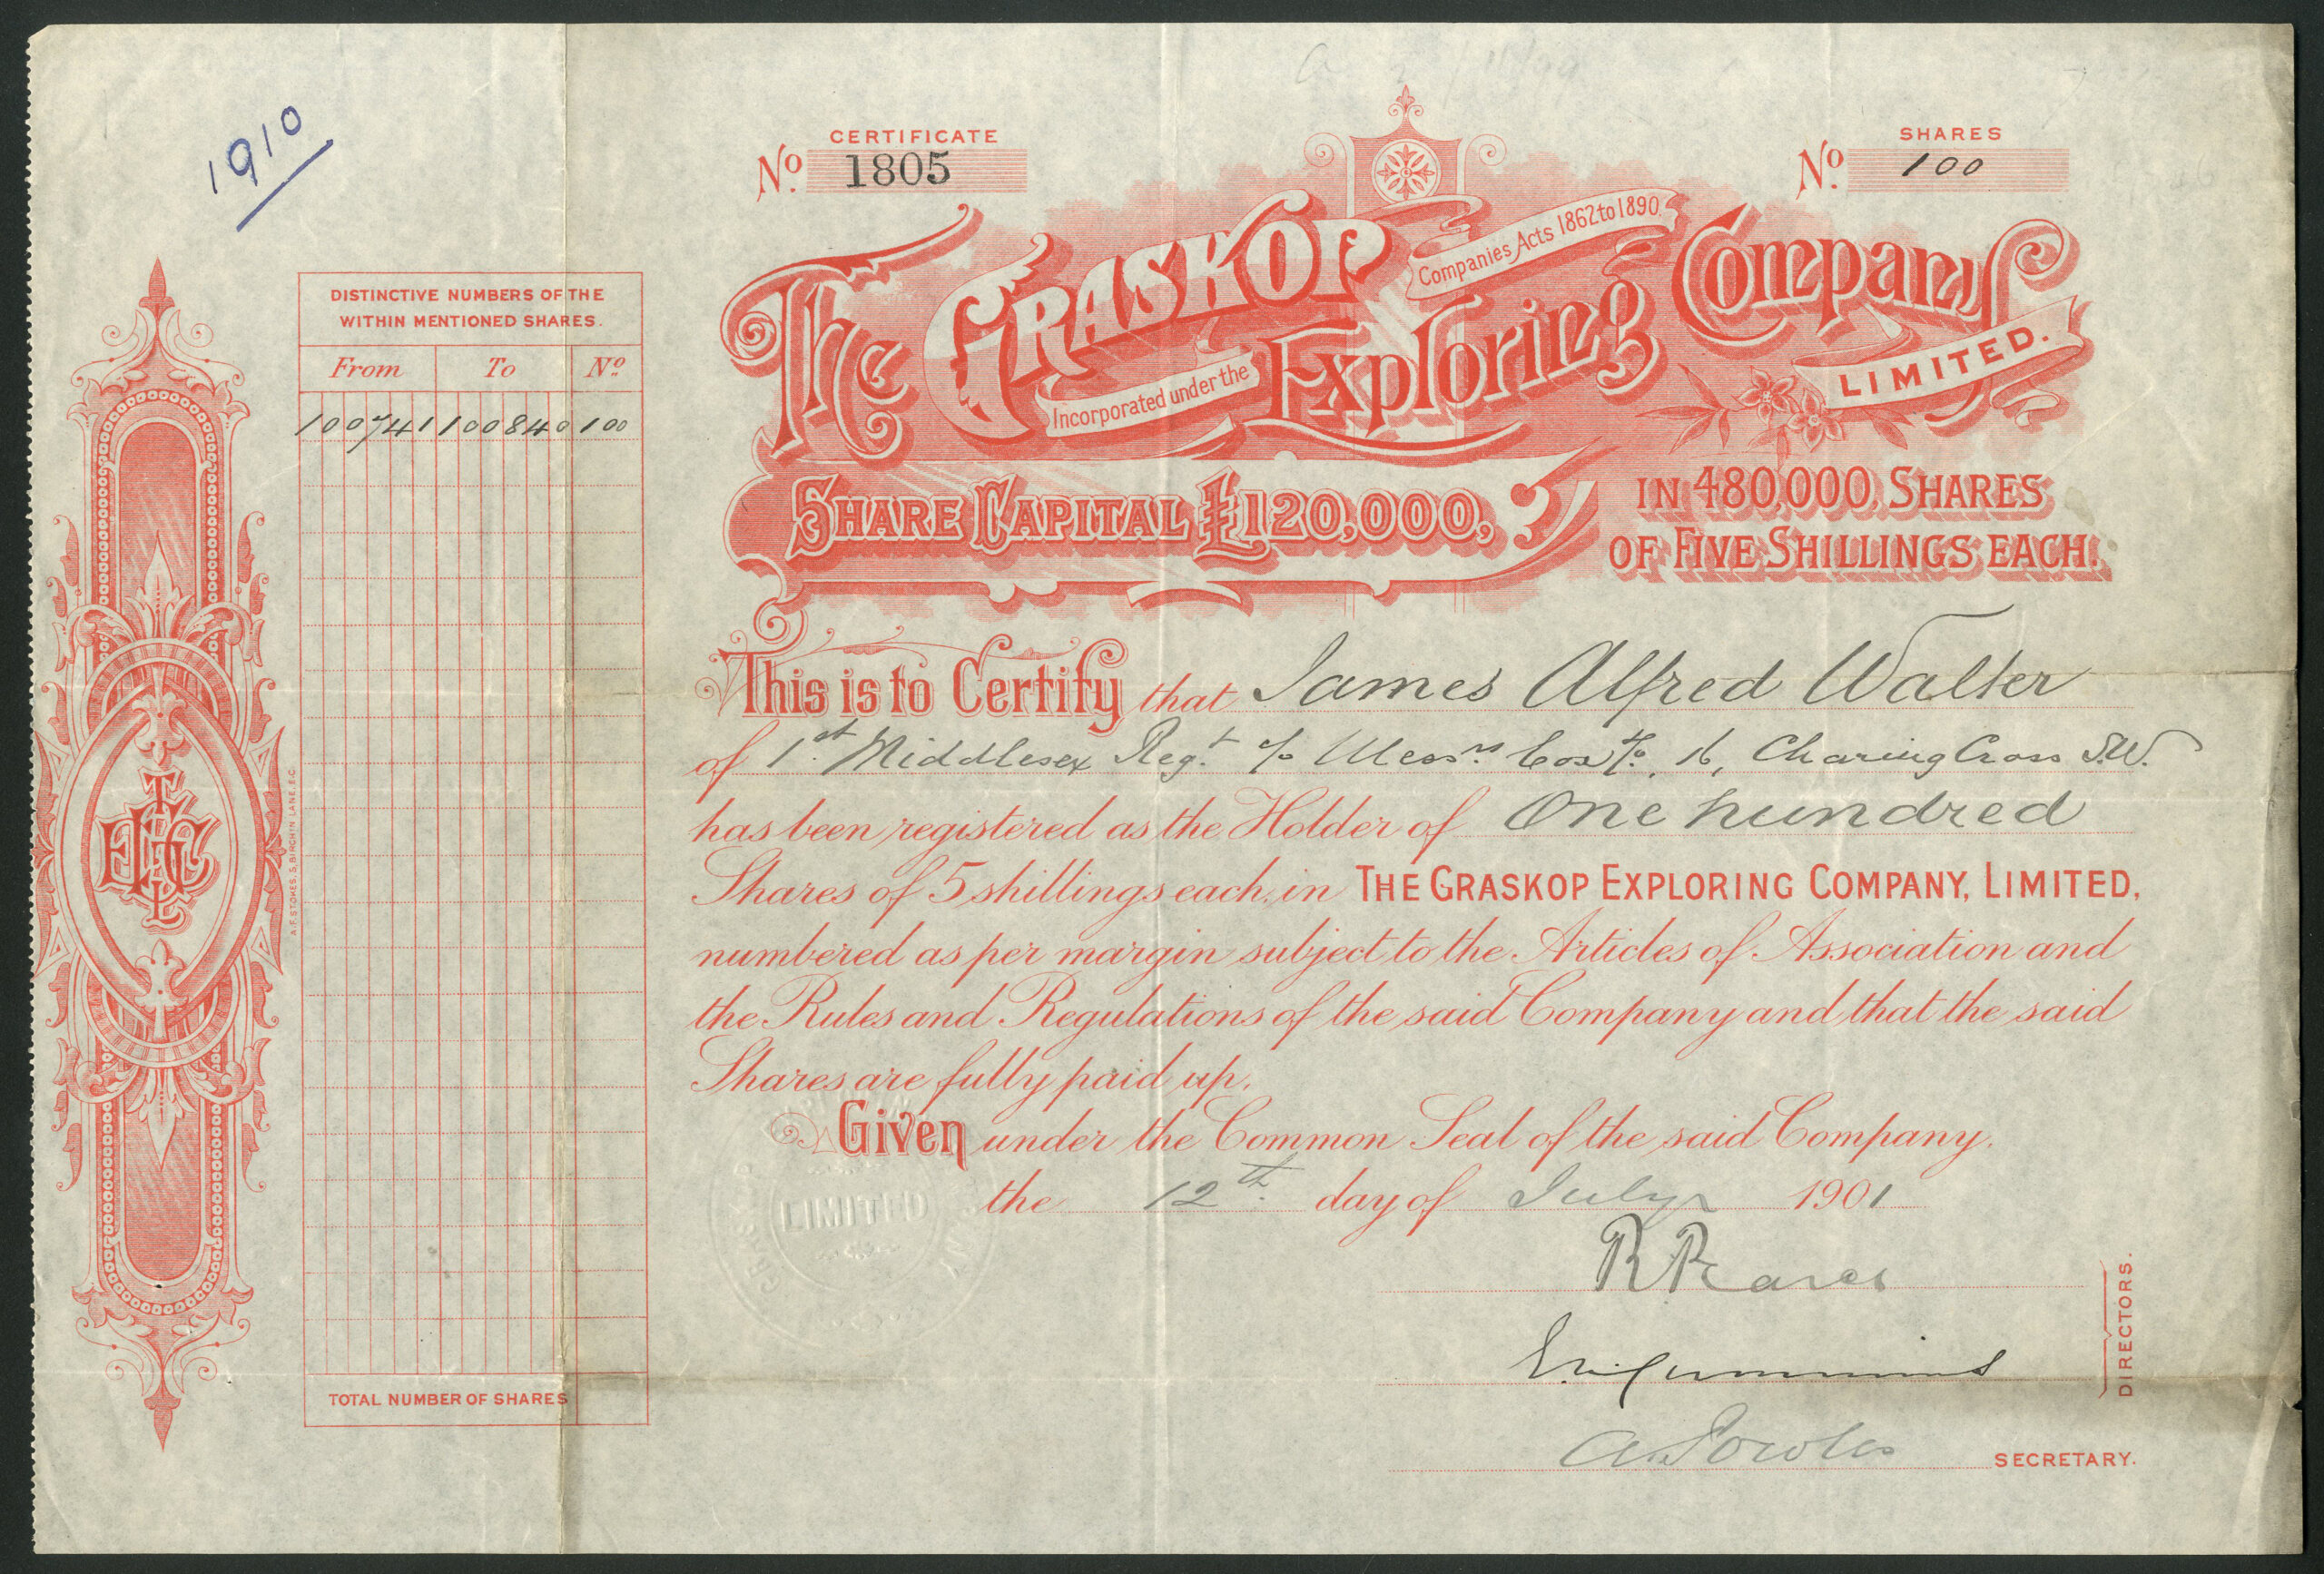 1910
CERTIFICATE
No. 1805
SHARES
No. 100
The GRASKOP Exploring Company
LIMITED.
Incorporated under the
Companies Acts 1862 to 1890.
SHARE CAPITAL £120,000,
IN 480,000, SHARES
OF FIVE SHILLINGS EACH.
DISTINCTIVE NUMBERS OF THE
WITHIN MENTIONED SHARES.
From To No.
100741 100840 100
TOTAL NUMBER OF SHARES
A.F. STOKES, 5, BIRCHIN LANE, E.C.
This is to Certify that James Alfred Walter
of 1st. Middlesex Regt. c/o Messrs. Cox & Co., 16, Charing Cross S.W.
has been registered as the Holder of One hundred
Shares of 5 shillings each, in THE GRASKOP EXPLORING COMPANY, LIMITED,
numbered as per margin subject to the Articles of Association and
the Rules and Regulations of the said Company and that the said
Shares are fully paid up.
Given under the Common Seal of the said Company.
the 12th. day of July 1901
LIMITED
DIRECTORS.
SECRETARY.